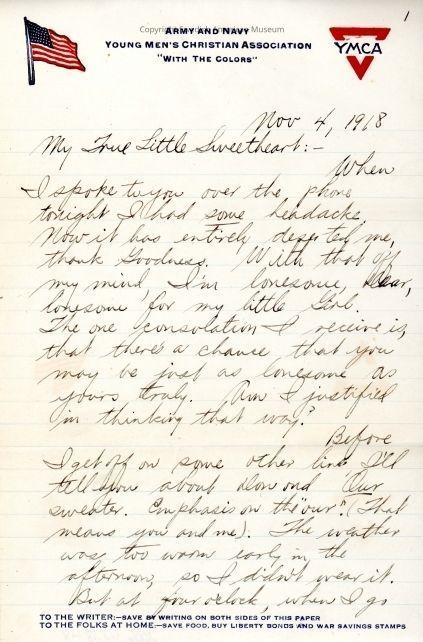 1
Army and Navy
Young Men's Christian Association
"With The Colors"
YMCA
Nov 4, 1918
My True Little Sweetheart:-
When
I spoke to you over the phone
tonight I had some headache.
Now it has entirely deserted me,
thank Goodness. With that off
my mind, I'm lonesome, dear,
lonesome for my little Girl.
The one consolation I receive is,
that there's a chance that you
may be just as lonesome as
yours truly. Am I justified
in thinking that way?
Before
I get off on some other line I'll
tell you about and "Our
sweater. Emphasis on the "our". (That
means you and me). The weather
was too warm early in the
afternoon, so I didn't wear it.
But at four o'clock, when I go
TO THE WRITER:—SAVE BY WRITING ON BOTH SIDES OF THIS PAPER
TO THE FOLKS AT HOME:—SAVE FOOD, BUY LIBERTY BONDS AND WAR SAVINGS STAMPS